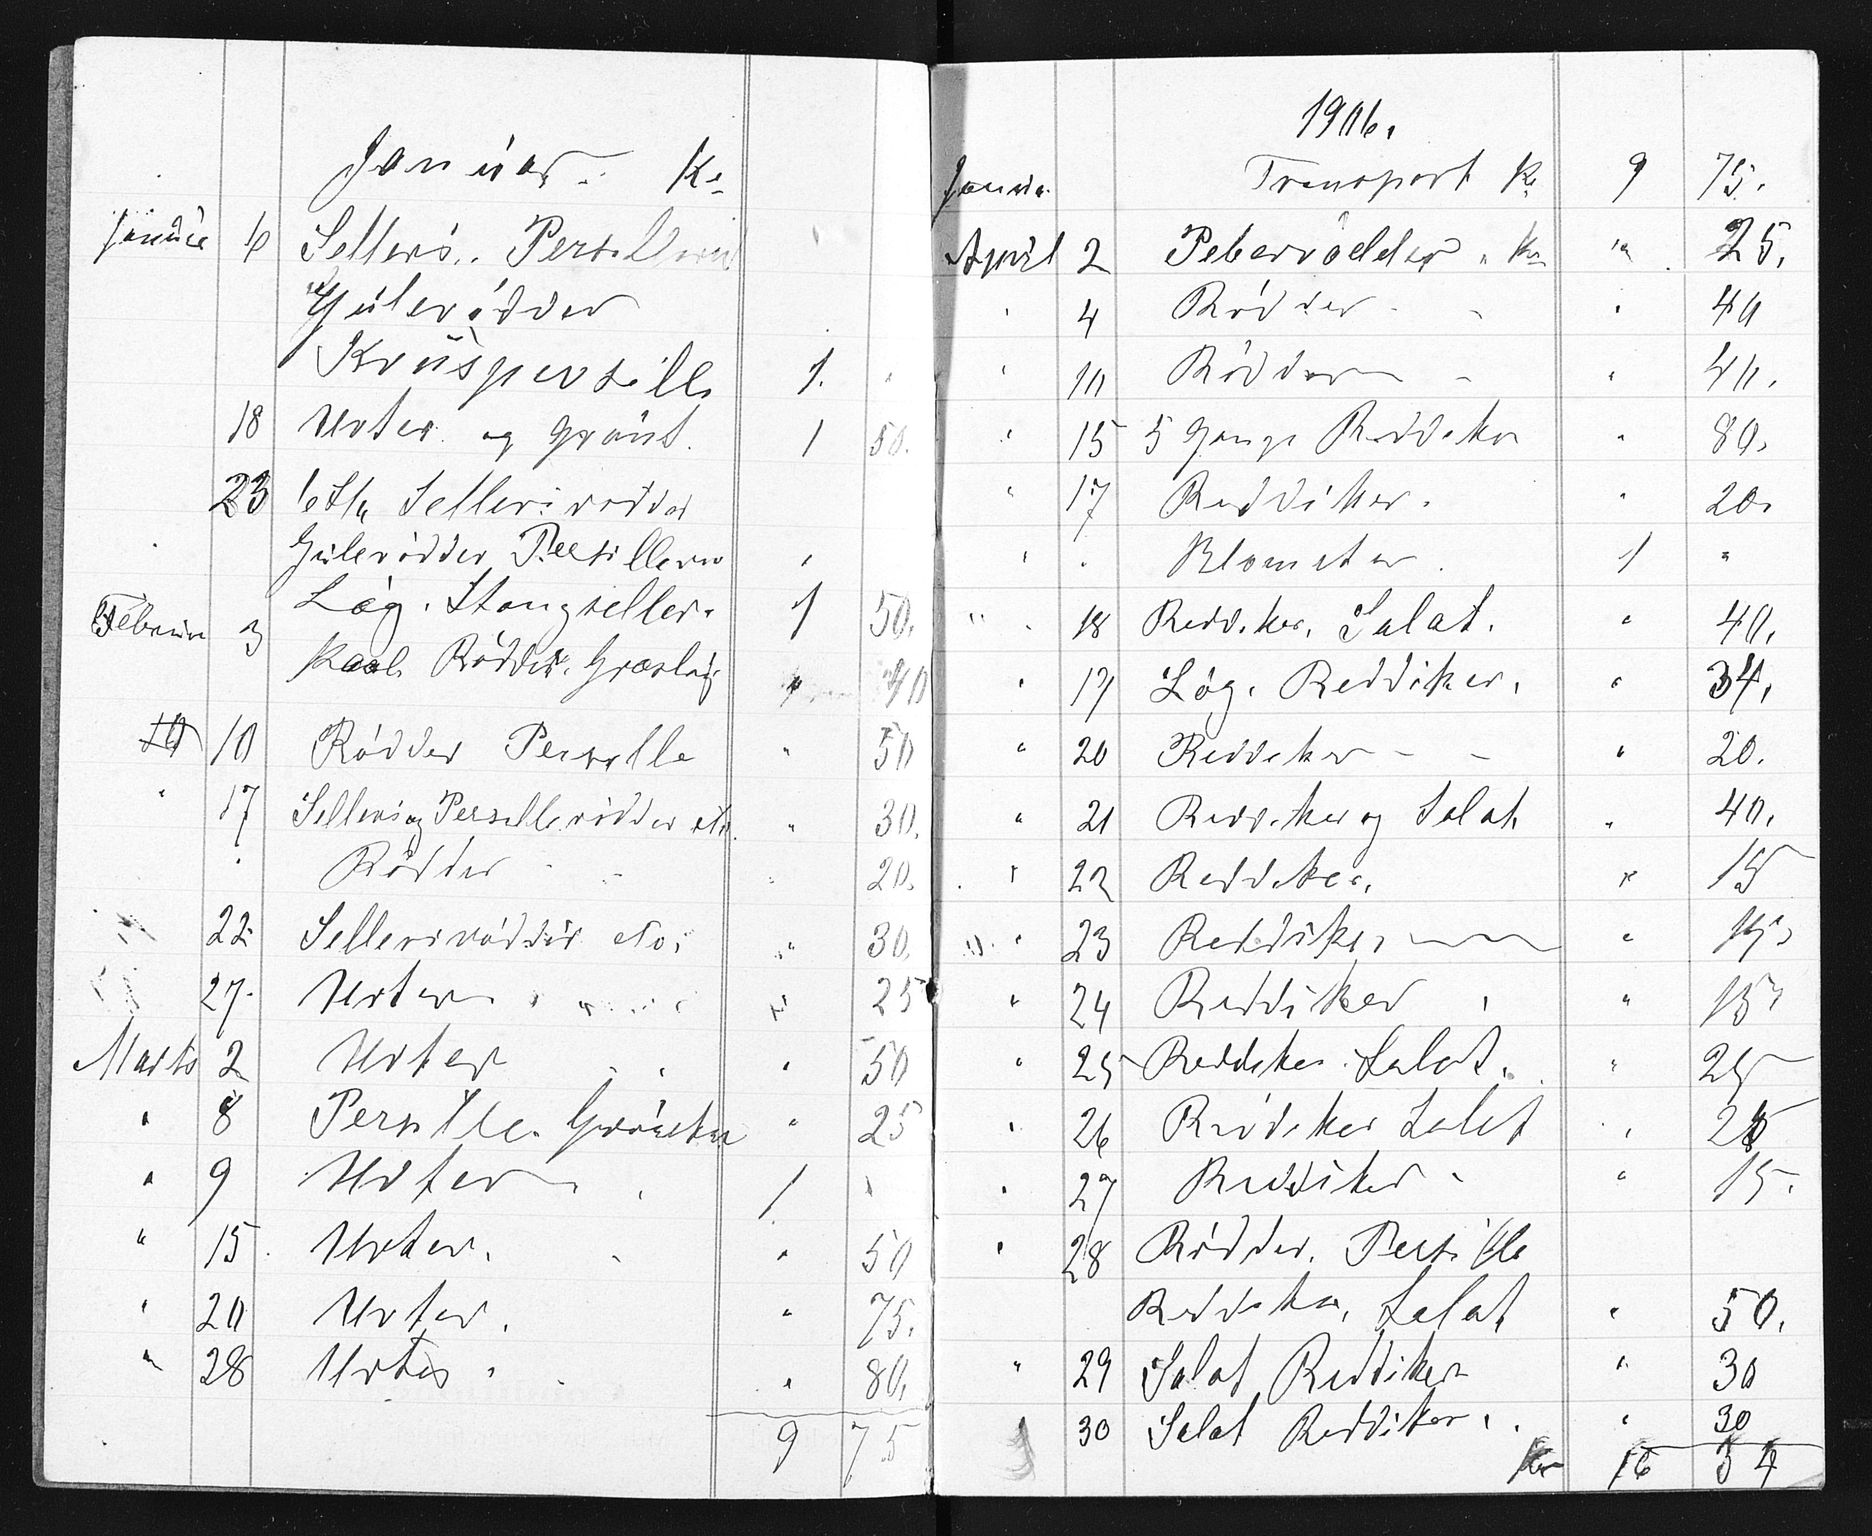 Januar. Kr
Januar 6 Selleri. Persillerod
Gulerödder
Kruspersille 1. "
18 Urter og Grönt. 1 50.
23 6 Stk Sellerirödder
Gulerödder Persillerod
Løg. Stangselleri. 1 50.
Februar 3 Kaal. Rödder. Græslög " 40
10 Rödder Persille " 50
" 17 Selleri og Persillerödder etc. " 30.
" Rödder " 20.
22 Sellerirödder etc. " 30.
27. Urter " 25
Marts 2 Urter " 50
" 8 Persille. Grönkaal " 25
" 9 Urter 1 "
" 15 Urter. " 50
" 20 Urter. " 75.
" 28 Urter " 80.
9 75
1906.
Januar Transport Kr 9 75.
April 2 Peberrödder " Kr " 25.
" 4 Rödder " 40
" 10 Rödder " 40.
" 15 5 Gange Reddiker " 80.
" 17 Reddiker. " 20.
" " Blomster. 1 "
" 18 Reddiker. Salat. " 40.
" 19 Løg. Reddiker. " 34.
" 20 Reddiker " 20.
" 21 Reddiker og Salat " 40.
" 22 Reddiker. " 15
" 23 Reddiker " 15
" 24 Reddiker " 15
" 25 Reddiker. Salat. " 25
" 26 Reddiker Salat " 25
" 27 Reddiker " 15.
" 28 Rödder. Persille
Reddiker, Salat " 50.
" 29 Salat Reddiker " 30
30 Salat Reddiker. " 30
Kr 16 34